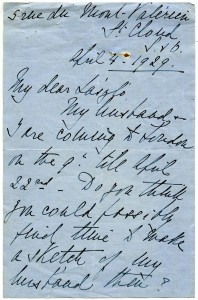 5 rue du Mont-Valérien
St. Cloud
S. & O.
April 4. 1929.
My dear László
My husband &
I are coming to London
on the 9th till April
22nd - Do you think
you could possibly
find time to make
a sketch of my
husband then?